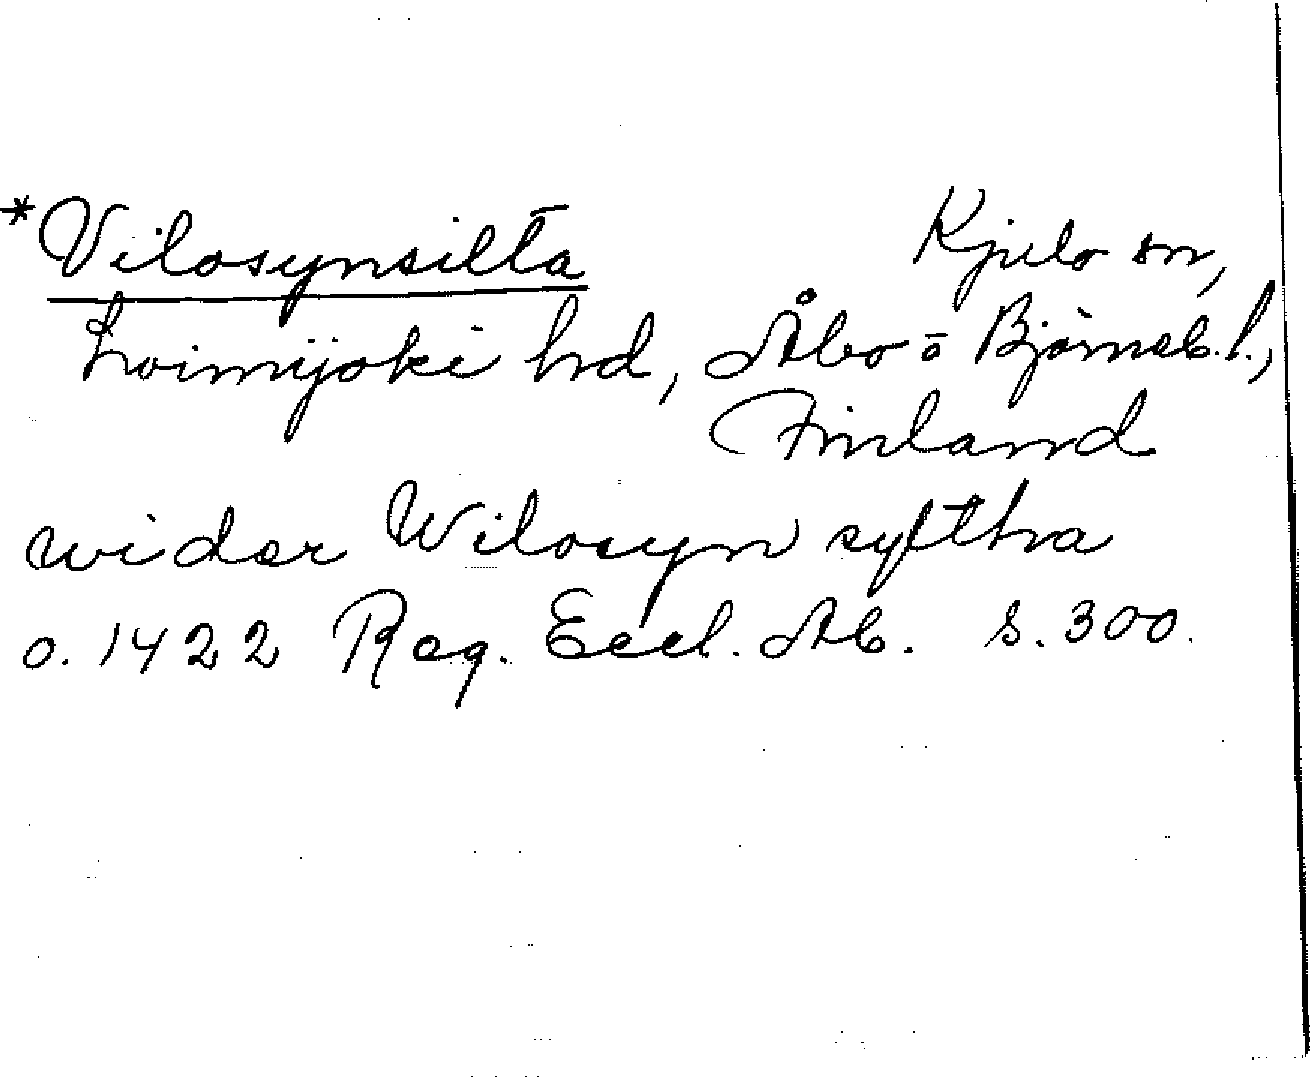 *Vilosynsilta
Kjulo sn,
Loimijoki hd, Åbo o Björneb. l.,
Finland
wider Wilosyn syltha
o. 1422 Reg. Eccl. Ab. s. 300.